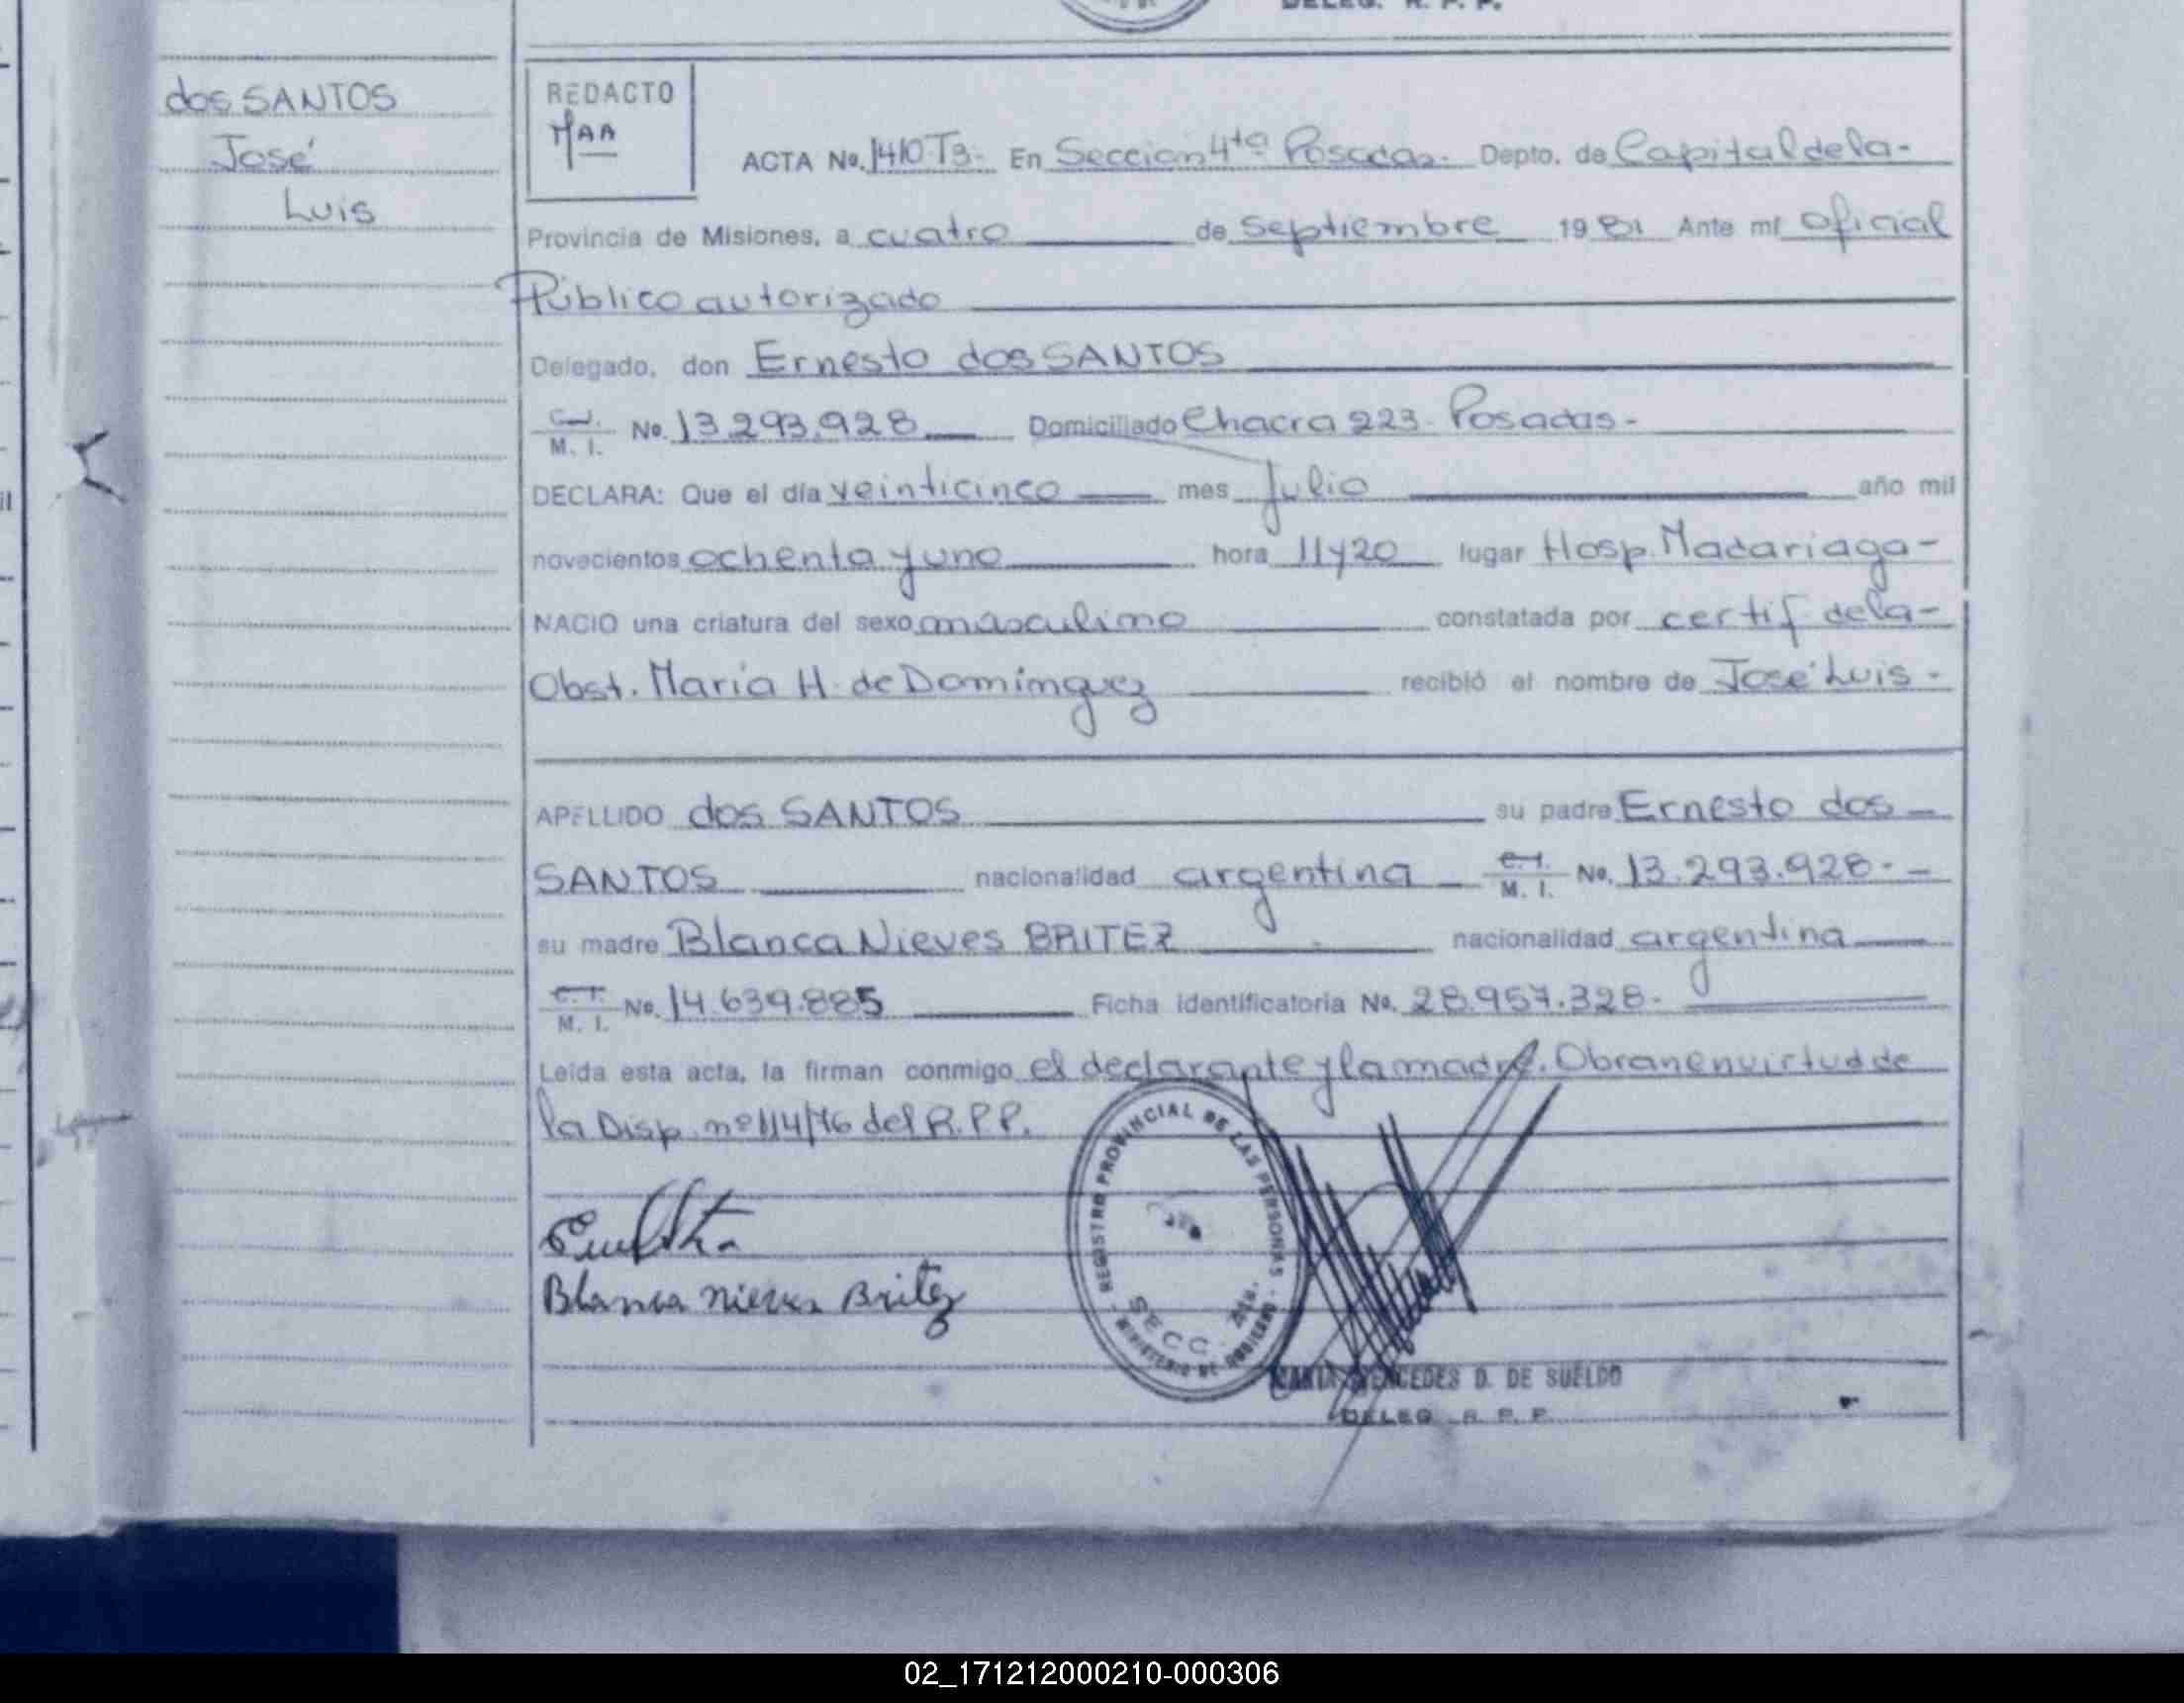 DELEG. R. P. P.
dos SANTOS
José
Luis
REDACTO
MAA
ACTA No. 1410.T3.- En Seccion 4ta Posadas.- Depto. de Capital de la-
Provincia de Misiones, a cuatro de septiembre 1981 Ante mí oficial
Público autorizado
Delegado, don Ernesto dos SANTOS
C.I. M. I. No. 13.293.928 Domiciliado Chacra 223.- Posadas.-
DECLARA: Que el día veinticinco mes Julio año mil
novecientos ochenta y uno hora 11y20 lugar Hosp. Madariaga-
NACIO una criatura del sexo masculino constatada por certif de la-
Obst. María H. de Domínguez recibió el nombre de José Luis.-
APELLIDO dos SANTOS su padre Ernesto dos
SANTOS nacionalidad argentina C.I. M. I. No. 13.293.928.-
su madre Blanca Nieves BRITEZ nacionalidad argentina
C.I. M. I. No. 14.639.885 Ficha identificatoria No. 28.957.328.-
Leída esta acta, la firman conmigo el declarante y la madre. Obran en virtud de
la Disp. nº 114/76 del R.P.P.
Blanca Nieves Britez
REGISTRO PROVINCIAL DE LAS PERSONAS
SECC. 4ta.
MINISTERIO DE GOBIERNO
MERCEDES D. DE SUELDO
DELEG. R. P. P.
02_171212000210-000306